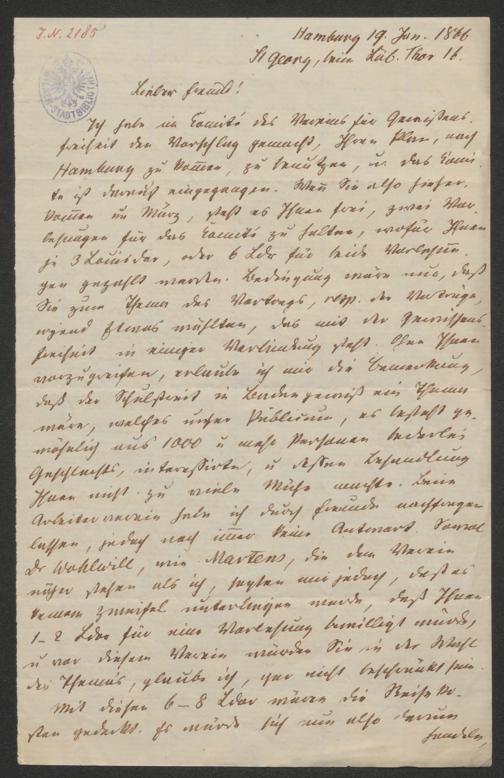 J.N. 2185
Hamburg 19. Jan. 1866
St Georg, beim Lüb. Thor 16.
STADTBIBLIOTHEK
Lieber Freund!
Ich habe im Comité des Vereins für Gewissens-
freiheit den Vorschlag gemacht, Ihren Plan, nach
Hamburg zu kommen, zu benutzen, u. das Comi-
te ist darauf eingegangen. Wenn Sie also hieher
kommen im März, steht es Ihnen frei, zwei Vor-
lesungen für das Comité zu halten, wofür Ihnen
je 3 Louisdor, oder 6 Ldor für beide Vorlesun-
gen gezahlt werden. Bedingung wäre nur, daß
Sie zum Thema des Vortrags, resp. der Vorträge,
irgend Etwas wählten, das mit der Gewissens-
freiheit in einiger Verbindung steht. Ohne Ihnen
vorzugreifen, erlaube ich mir die Bemerkung,
daß der Schulstreit in Baden gewiß ein Thema
wäre, welches unser Publicum, es besteht ge-
wöhnlich aus 1000 u mehr Personen beiderlei
Geschlechts, interessirte, u dessen Behandlung
Ihnen nicht zu viele Mühe machte. Beim
Arbeiterverein habe ich durch Freunde nachfragen
lassen, jedoch noch immer keine Antwort. Sowol
Dr Wohlwill, wie Martens, die dem Verein
näher stehen als ich, sagten mir jedoch, daß es
keinem Zweifel unterliegen werde, daß Ihnen
1-2 Ldor für eine Vorlesung bewilligt würde,
u vor diesem Verein würden Sie in der Wahl
des Themas, glaube ich, gar nicht beschränkt sein.
Mit diesen 6-8 Ldor wären die Reiseko-
sten gedeckt. Es würde sich nun also darum
handeln,